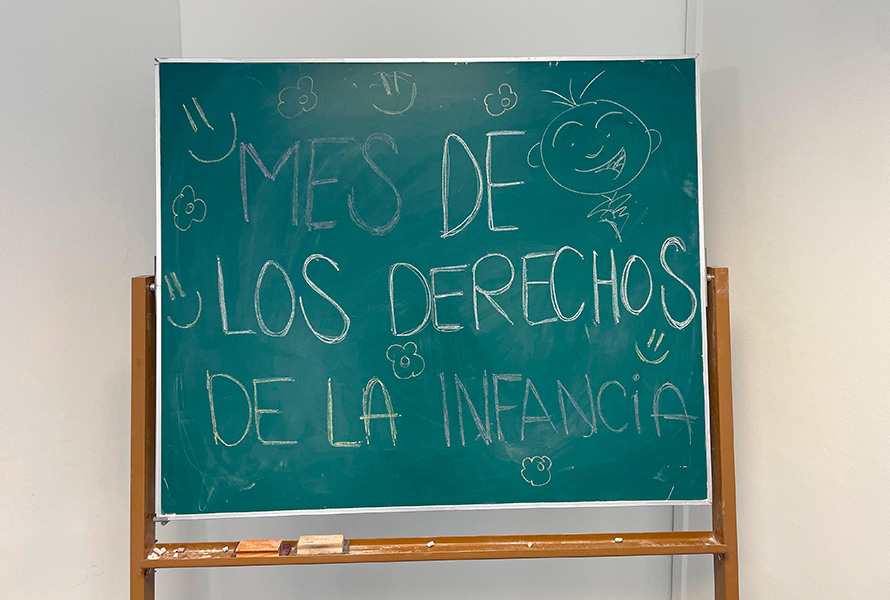 MES DE
LOS DERECHOS
DE LA INFANCiA